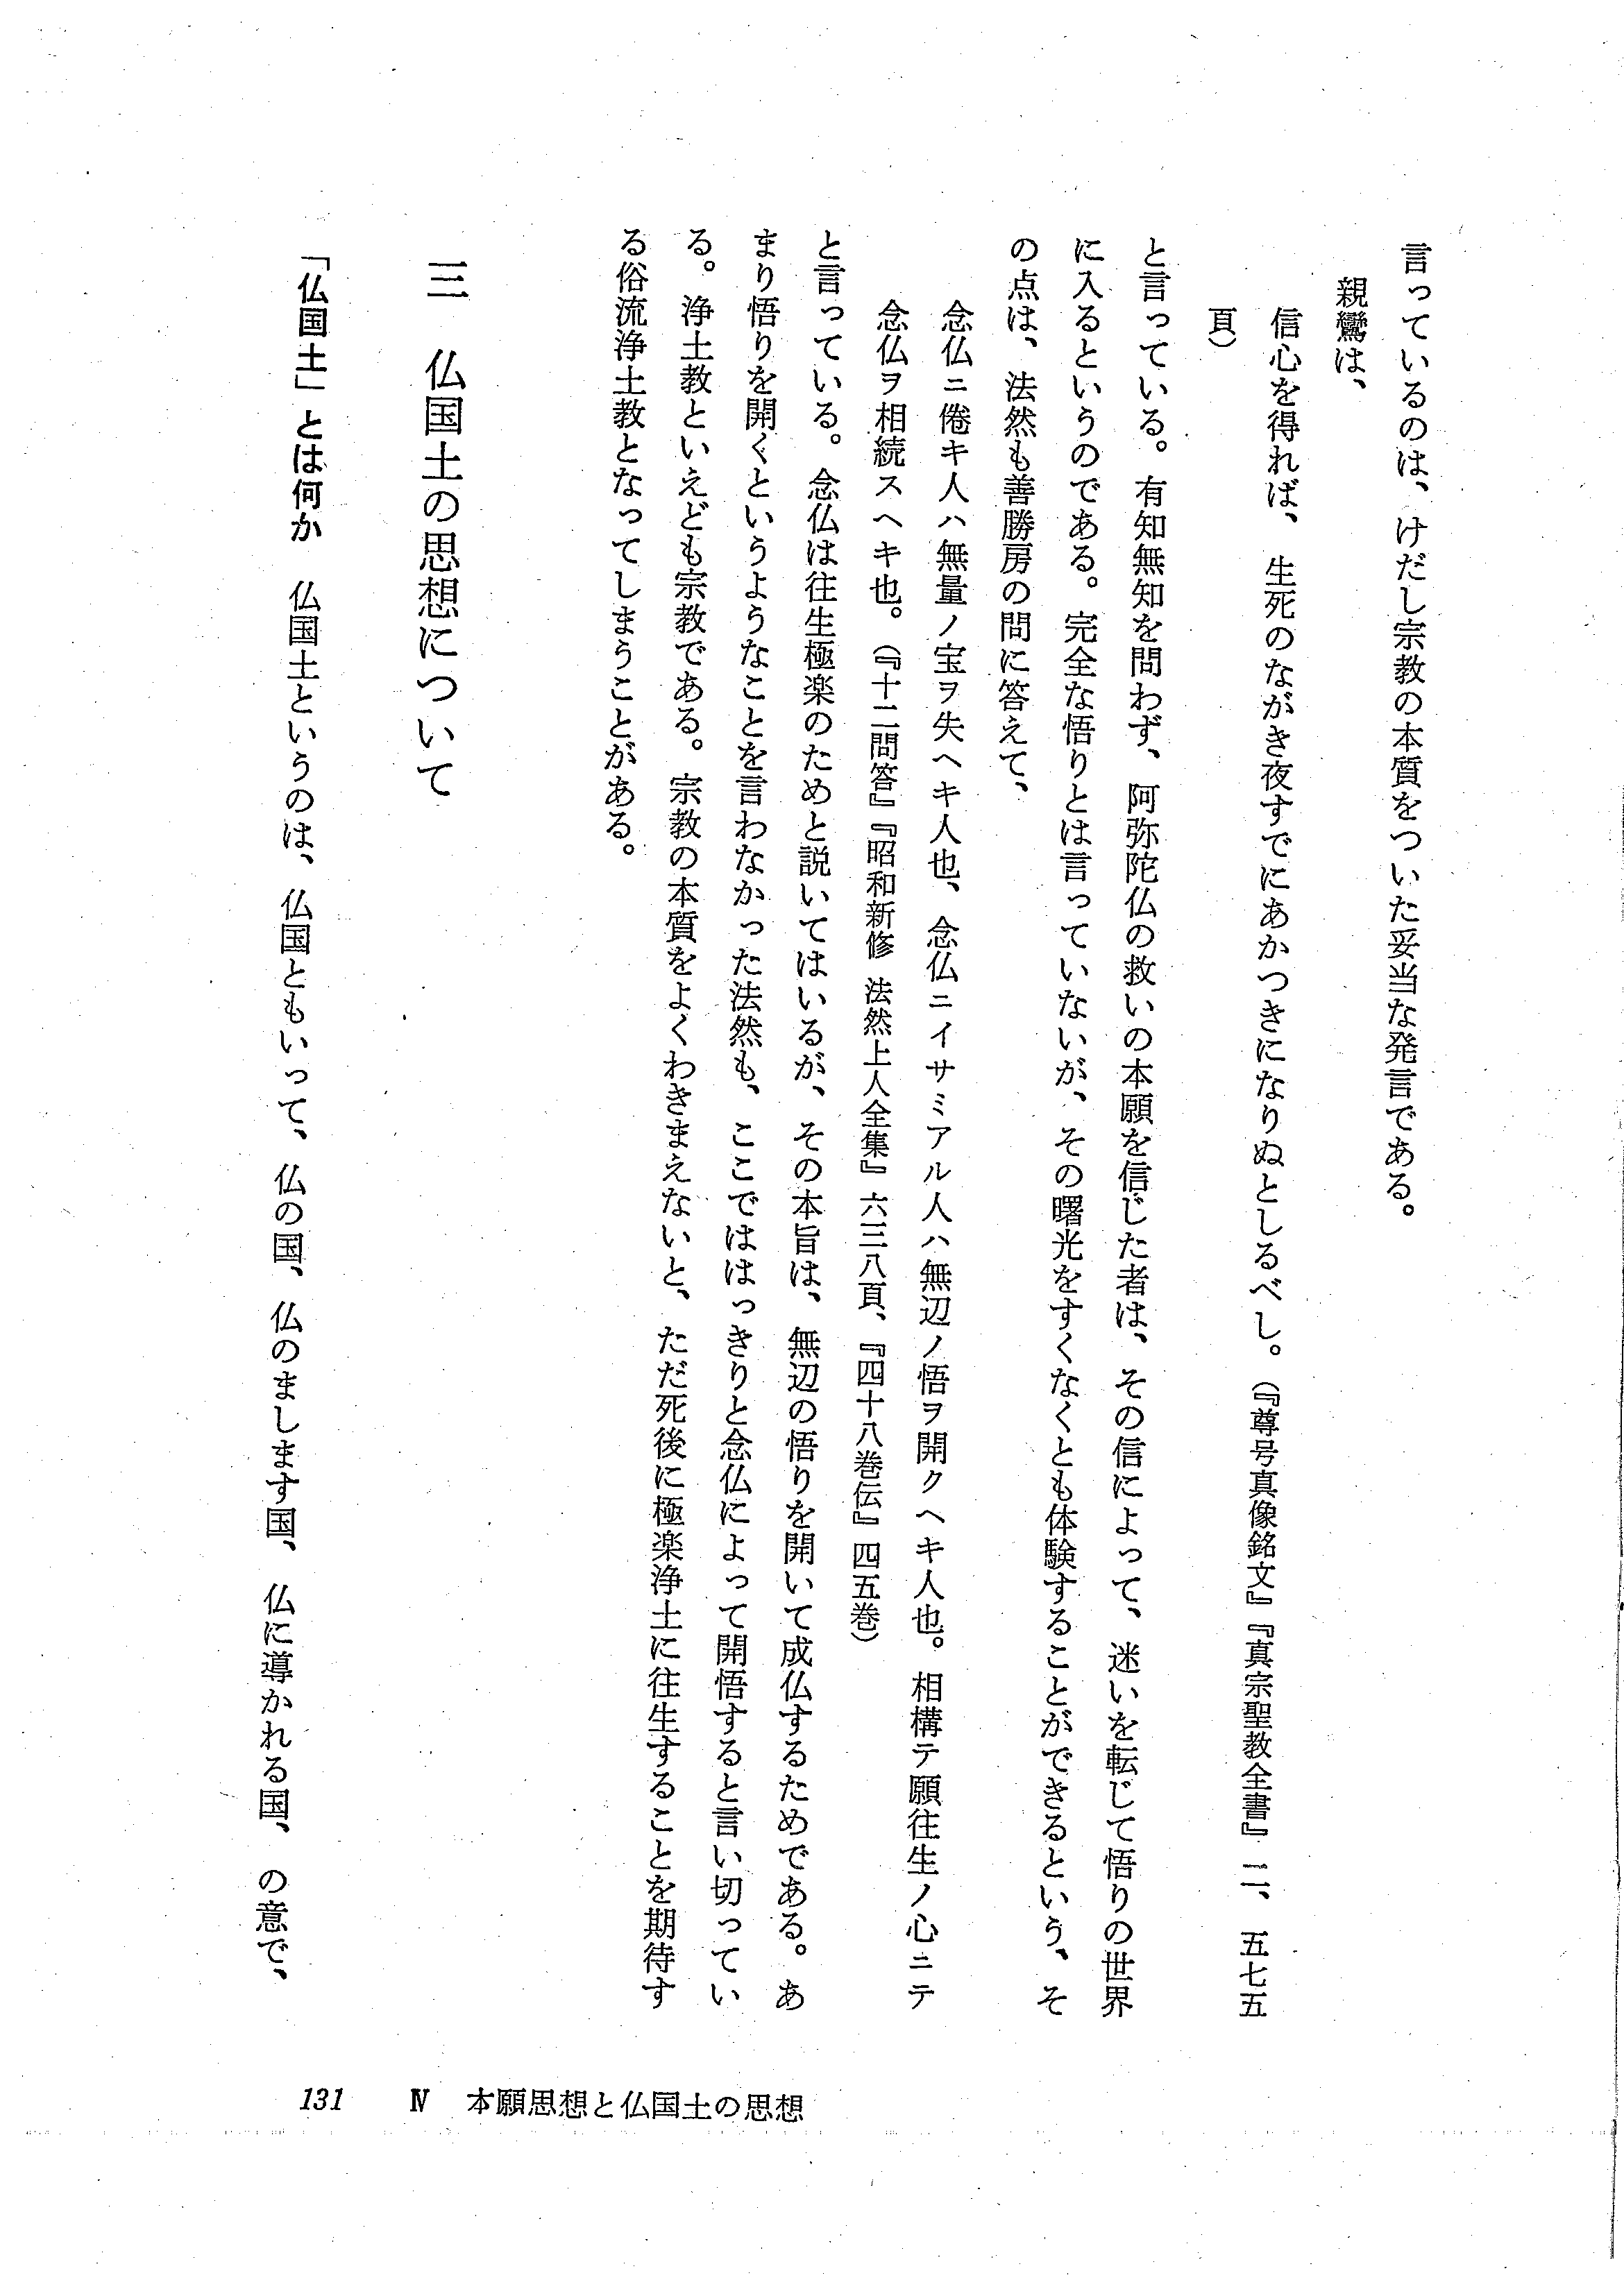 言っているのは、けだし宗教の本質をついた妥当な発言である。
親鸞は、
信心を得れば、生死のながき夜すでにあかつきになりぬとしるべし。（『尊号真像銘文』『真宗聖教全書』二、五七五
頁）
と言っている。有知無知を問わず、阿弥陀仏の救いの本願を信じた者は、その信によって、迷いを転じて悟りの世界
に入るというのである。完全な悟りとは言っていないが、その曙光をすくなくとも体験することができるという、そ
の点は、法然も善勝房の問に答えて、
念仏ニ倦キ人ハ無量ノ宝ヲ失ヘキ人也、念仏ニイサミアル人ハ無辺ノ悟ヲ開クヘキ人也。相構テ願往生ノ心ニテ
念仏ヲ相続スヘキ也。（『十二問答』『昭和新修 法然上人全集』六三八頁、『四十八巻伝』四五巻）
と言っている。念仏は往生極楽のためと説いてはいるが、その本旨は、無辺の悟りを開いて成仏するためである。あ
まり悟りを開くというようなことを言わなかった法然も、ここでははっきりと念仏によって開悟すると言い切ってい
る。浄土教といえども宗教である。宗教の本質をよくわきまえないと、ただ死後に極楽浄土に往生することを期待す
る俗流浄土教となってしまうことがある。
三 仏国土の思想について
「仏国土」とは何か 仏国土というのは、仏国ともいって、仏の国、仏のまします国、仏に導かれる国、の意で、
131 Ⅳ 本願思想と仏国土の思想